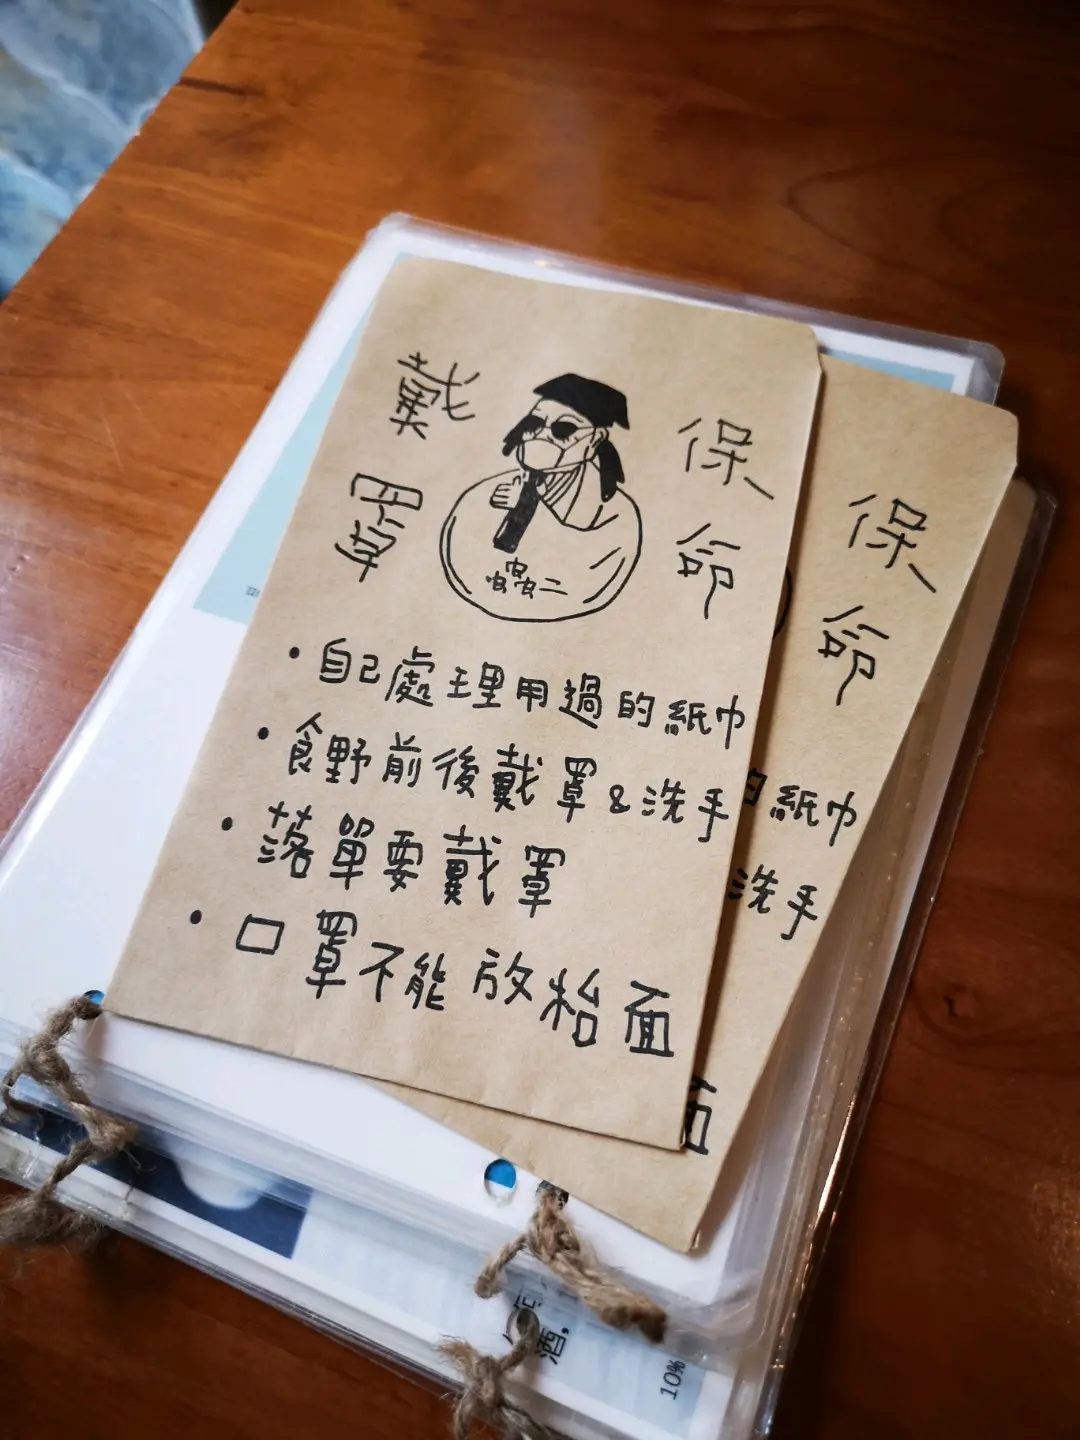 戴罩
保命
蟲二
• 自己處理用過的紙巾
• 食野前後戴罩&洗手
• 落單要戴罩
• 口罩不能放枱面
保命
的紙巾
洗手
面
酒,
10%